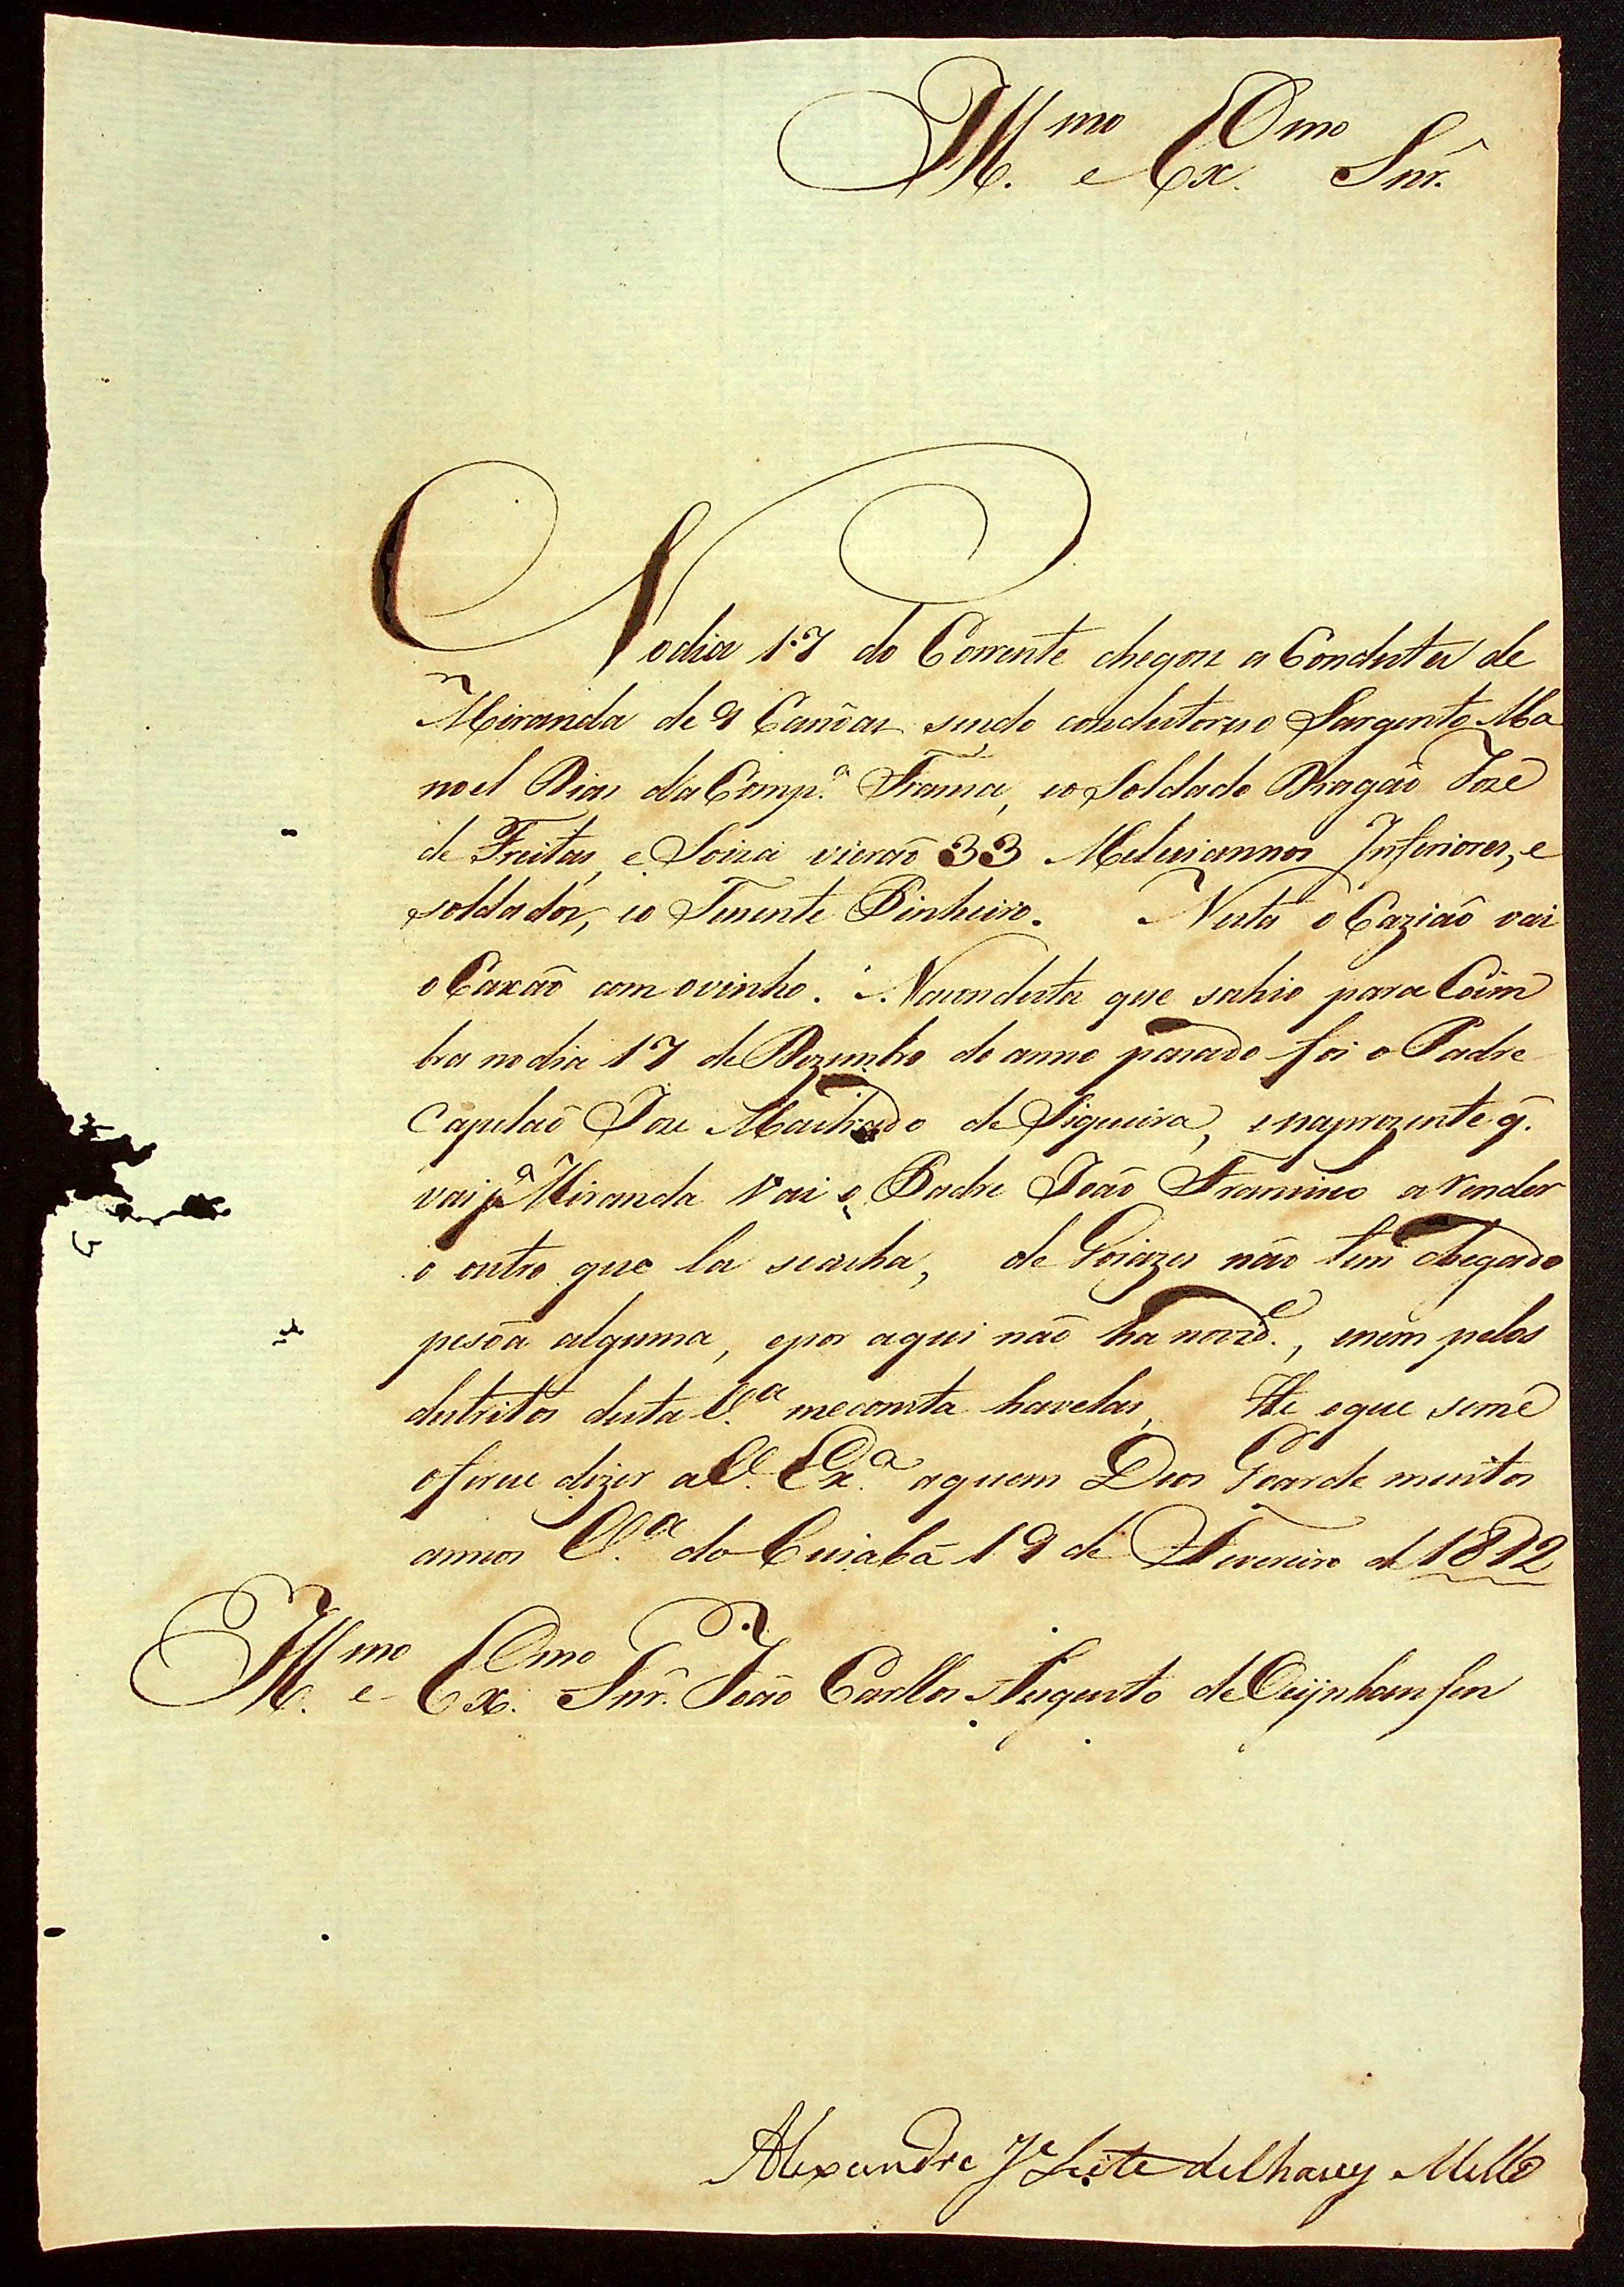 Ill.mo e Ex.mo Snr.
No dia 17 do Corrente chegou a Conducta de
Miranda de 9 Canôas sendo conductores o Sargento Ma
noel Dias da Comp.a Franca, e o Soldado Dragaõ Joze
de Freitas, e Soiza vieraõ 33 Meliciannos Inferiores, e
soldados, e o Tenente Pinheiro. Nesta o Caziaõ vai
o Caxaõ com o vinho. Na conducta que sahio para Coim
bra no dia 17 de Dezembro do anno pasado foi o Padre
Capelaõ Joze Machado de Siqueira, e na prezente q.
vai p.a Miranda vai o Padre Joaõ Francisco a render
o outro que la se acha, de Goiazes naõ tem chegado
pesôa alguma, e por aqui naõ ha novid.e, e nem pelos
destritos desta V.a me consta havelas, He o que se me
oferece dizer a V. Ex.a a quem Deos Goarde muitos
annos V.a do Cuiabá 19 de Fevereiro de 1812
Ill.mo e Ex.mo Snr. Joaõ Carllos Augusto de Oeijnhamsen
Alexandre J.e Leite de Chavez Mello